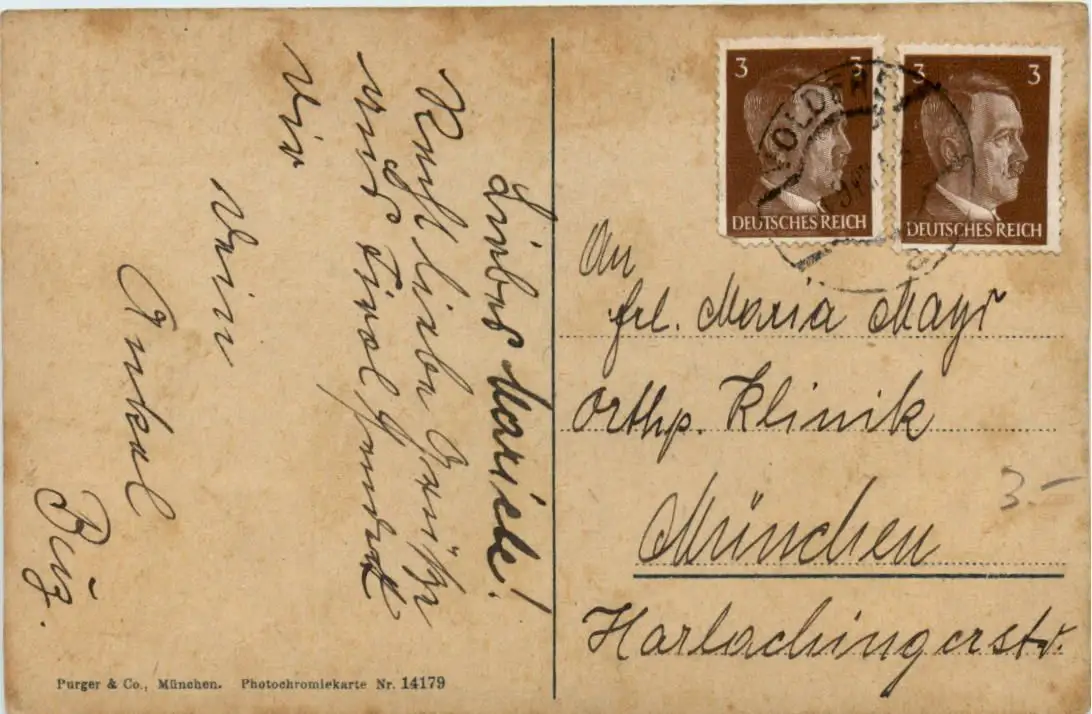 Liebes Mariele!
Recht liebe Grüße
aus Tirol sendet
Dir
Dein
Onkel
3 3
3 3
DEUTSCHES REICH
DEUTSCHES REICH
An
Frl. Maria Mayr
Orthp. Klinik
München
Harlachingerstr.
3.-
Purger & Co., München. Photochromiekarte Nr. 14179